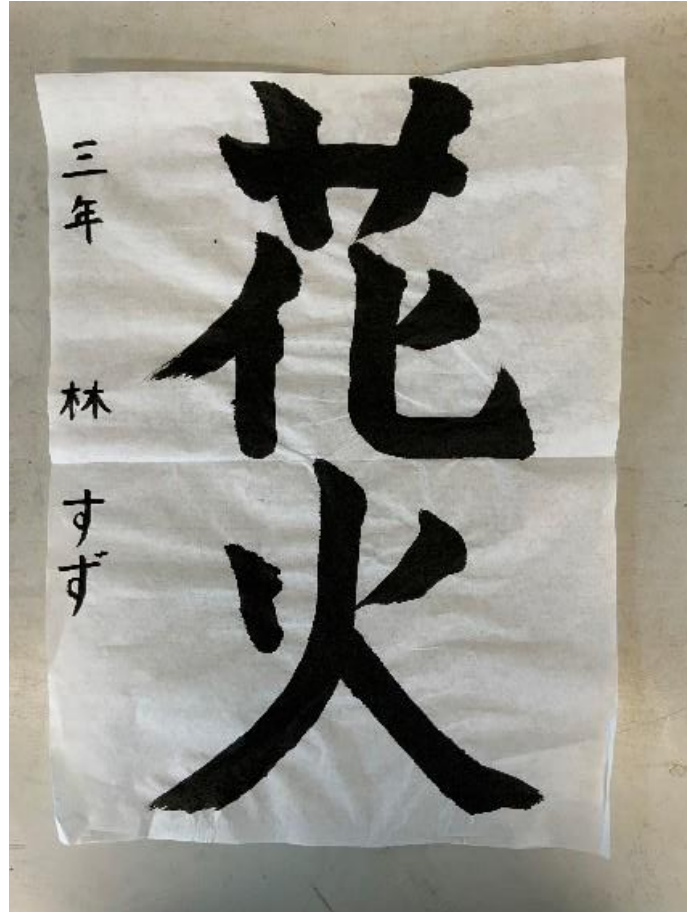 花火
三年 林 すず